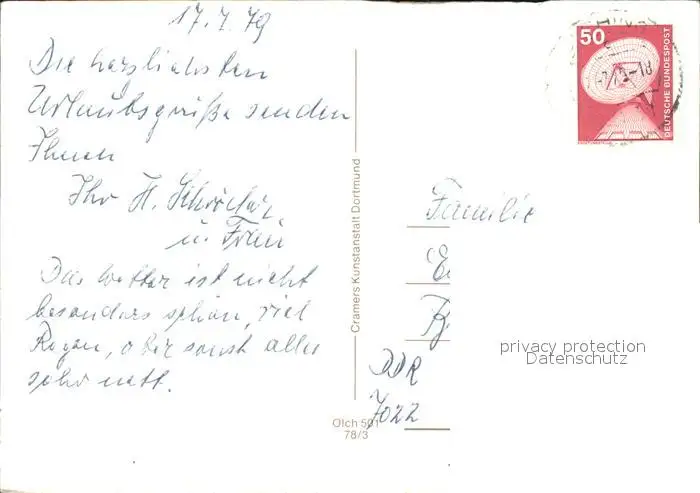 17.7.79
Die herzlichsten
Urlaubsgrüße senden
Ihnen
Ihr H. Schröder
u. Frau
Das Wetter ist nicht
besonders schön, viel
Regen, aber sonst alles
sehr nett.
Cramers Kunstanstalt Dortmund
Olch 501
78/3
50
DEUTSCHE BUNDESPOST
Familie
DDR
7022
privacy protection
Datenschutz